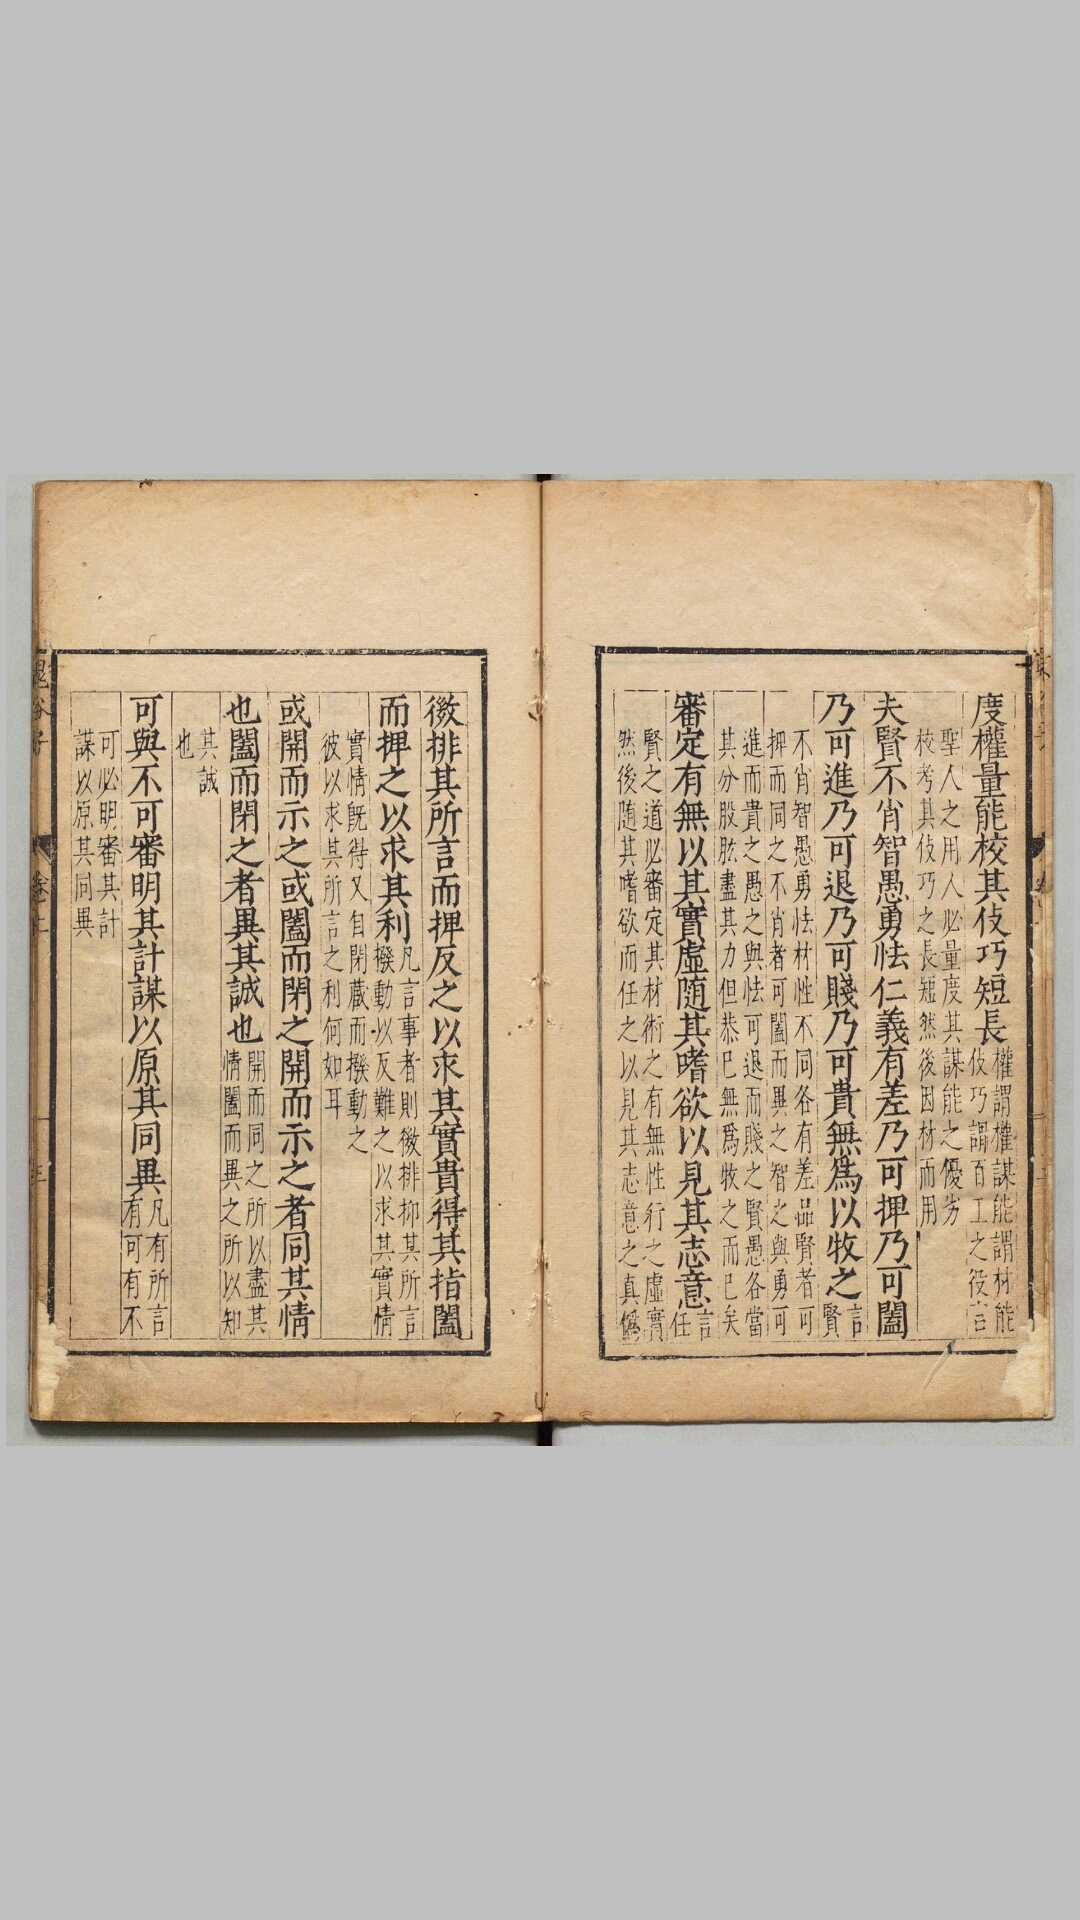 度權量能校其伎巧短長權謂權謀能謂材能伎巧謂百工之役言
聖人之用人必量度其謀能之優劣
校考其伎巧之長短然後因材而用
夫賢不肖智愚勇怯仁義有差乃可捭乃可闔
乃可進乃可退乃可賤乃可貴無爲以牧之言賢
不肖智愚勇怯材性不同各有差品賢者可
捭而同之不肖者可闔而異之智之與勇可
進而貴之愚之與怯可退而賤之賢愚各當
其分股肱盡其力但恭已無爲牧之而已矣
審定有無以其實虛隨其嗜欲以見其志意言任
賢之道必審定其材術之有無性行之虛實
然後隨其嗜欲而任之以見其志意之真僞
微排其所言而捭反之以求其實貴得其指闔
而捭之以求其利凡言事者則微排抑其所言撥動以反難之以求其實情
實情既得又自閉藏而撥動之
彼以求其所言之利何如耳
或開而示之或闔而閉之開而示之者同其情
也闔而閉之者異其誠也開而同之所以盡其情闔而異之所以知
其誠
也
可與不可審明其計謀以原其同異凡有所言有可有不
可必明審其計
謀以原其同異